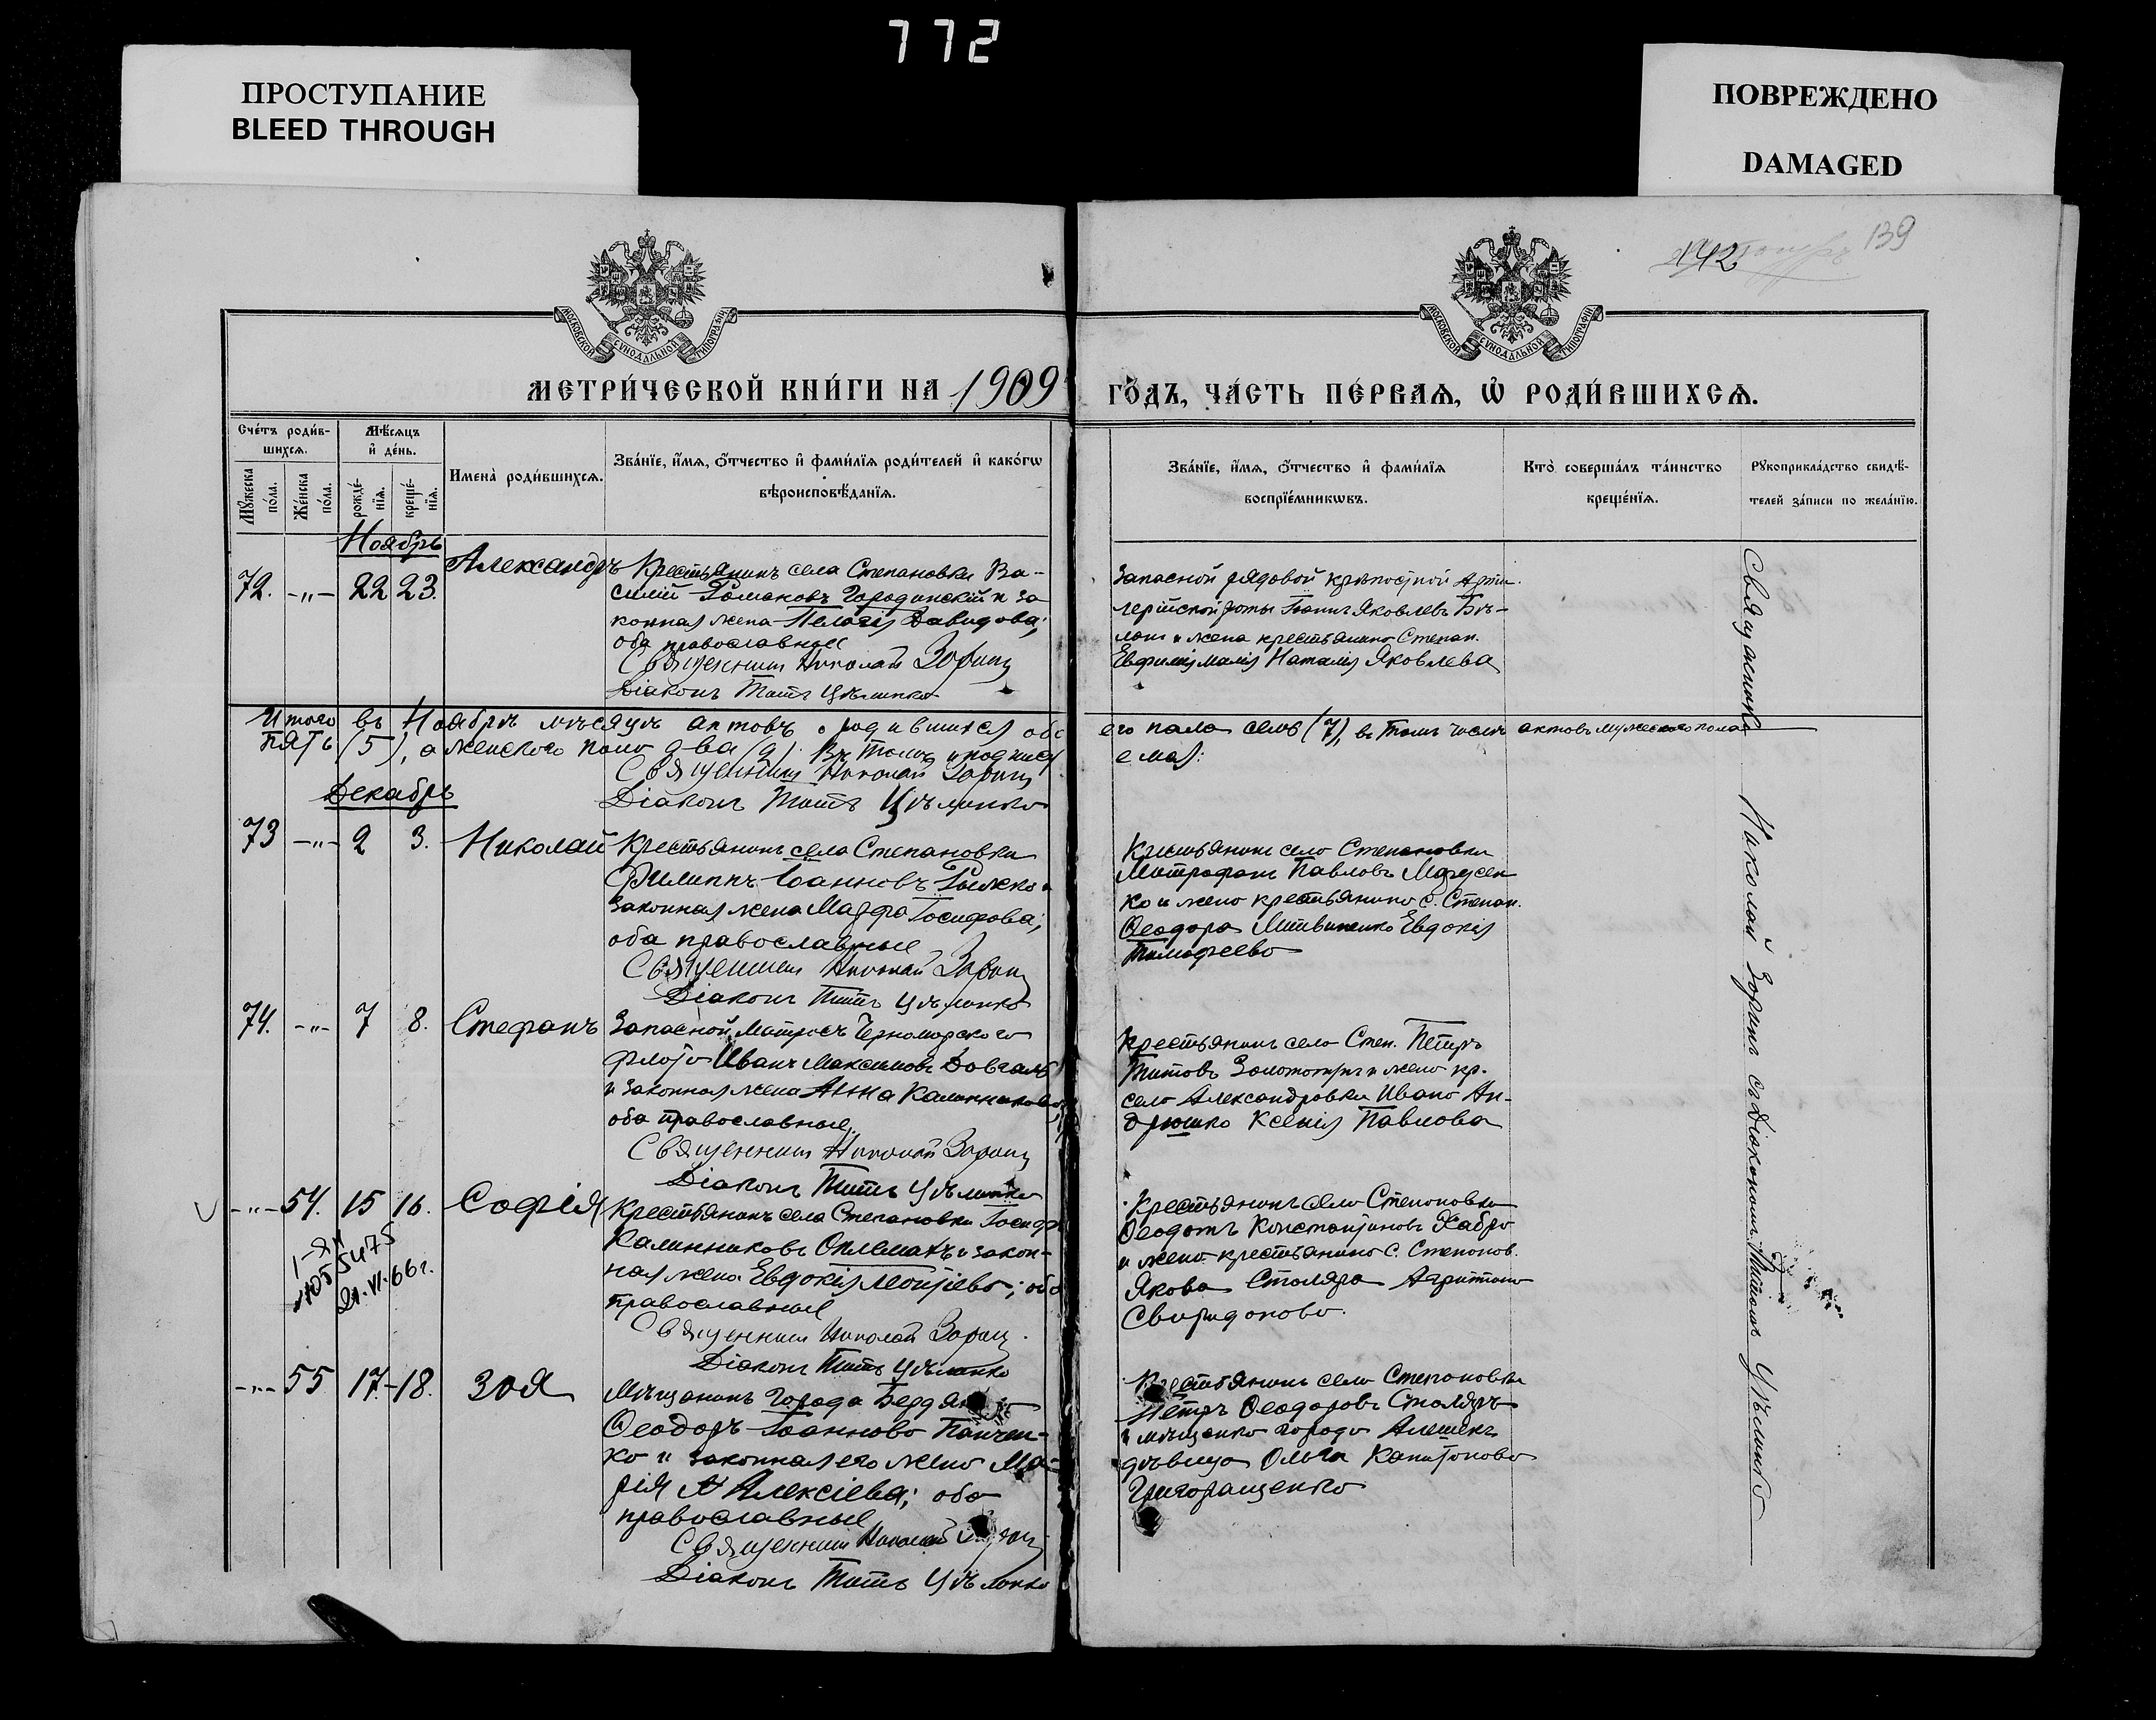 772
ПРОСТУПАНИЕ
BLEED THROUGH
ПОВРЕЖДЕНО
DAMAGED
142
139
МОСКОВСКОЙ СѴНОДАЛЬНОЙ ТИПОГРАФІИ
МОСКОВСКОЙ СѴНОДАЛЬНОЙ ТИПОГРАФІИ
МЕТРИ́ЧЕСКОЙ КНИ́ГИ НА 1909
ГО́ДЪ, ЧА́СТЬ ПЕ́РВАѦ, Ѡ҆ РОДИ́ВШИХСѦ.
Сче́тъ роди́в-
шихсѧ.
Мꙋ́жеска
по́ла.
Же́нска
по́ла.
Мѣ́сѧцъ
и҆ де́нь.
рожде́-
нїѧ.
креще́-
нїѧ.
Имена̀ роди́вшихсѧ.
Зва́нїе, и҆́мѧ, ѻ҆́тчество и҆ фами́лїѧ роди́телей и҆ како́гѡ
вѣроисповѣ́данїѧ.
Зва́нїе, и҆́мѧ, ѻ҆́тчество и҆ фами́лїѧ
воспрїе́мникѡвъ.
Кто̀ соверша́лъ та́инство
креще́нїѧ.
Рꙋкоприкла́дство свидѣ́-
телей за́писи по жела́нїю.
Ноябрь
72. -„- 22 23. Александръ
Крестьянинъ села Степановки Ва-
силій Городинскій и за
конная жена Пелагія Давидова;
оба православные
Священникъ Николай Зоринъ
Діаконъ Титъ Цѣлинко
Запасной рядовой крѣпостной Арти-
лерійской роты Іоаннъ Яковлевъ Бѣ-
и жена крестьянина Степан.
Наталія Яковлева
Итого въ Ноябрѣ мѣсяцѣ актовъ о родившихся обо
его пола семь (7), въ томъ числѣ актовъ мужескаго пола
пять (5), а женского пола два (2). Въ томъ и подписа
емся:
Священникъ Николай Зоринъ
Діаконъ Титъ Цѣлинко
Декабрь
73 -„- 2 3. Николай
Крестьянинъ села Степановки
Филиппъ Іоанновъ и
законная жена Марфа Іосифова;
оба православные
Священникъ Николай Зоринъ
Діаконъ Титъ Цѣлинко
Крестьянинъ села Степановки
Митрофанъ Павловъ
ко и жена крестьянина с. Степан.
Ѳеодора Литвиненко Евдокія
Тимофеева
74. -„- 7 8. Стефанъ
Запасной Матросъ Черноморскаго
флота Иванъ Максимовъ Довгаль
и законная жена Анна Калинникова
оба православные.
Священникъ Николай Зоринъ
Діаконъ Титъ Цѣлинко
Крестьянинъ села Степ. Петръ
Титовъ и жена кр.
села Александровки Ивана Ан-
дрюшко Ксенія Павлова
-„- 54. 15 16. Софія
1-ЯИ
№ 055475
21.VI.66г.
Крестьянинъ села Степановки Іосифъ
Калинниковъ и закон-
ная жена Евдокія; оба
православные
Священникъ Николай Зоринъ.
Діаконъ Титъ Цѣлинко
Крестьянинъ села Степановки
Ѳеодотъ Константиновъ Хабро
и жена крестьянина с. Степанов.
Якова Столяра Харитина
Свиридонова.
-„- 55 17-18. Зоя
Мѣщанинъ города
Ѳеодоръ Іоанновъ Панчен-
ко и законная его жена Ма-
рія Алексіева; оба
православные
Священникъ Николай Зоринъ
Діаконъ Титъ Цѣлинко
Крестьянинъ села Степановки
Петръ Ѳеодоровъ Столяръ
и мѣщанка города Алешекъ
дѣвица Ольга Капитонова
Григоращенко
Священникъ Николай Зоринъ съ Діакономъ Титомъ Цѣлинко